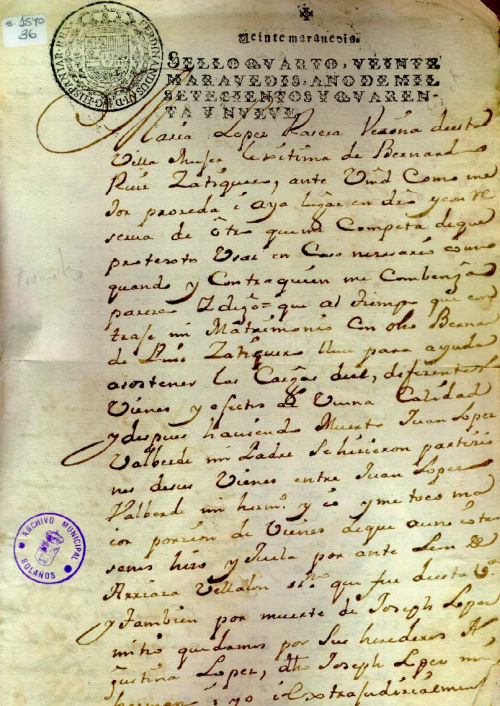 s. 1540
36
FERDINANDUS VI D G HISPANIAR REX
Veinte maravedis.
SELLO QVARTO, VEINTE
MARAVEDIS, AÑO DE MIL
SETECIENTOS Y QVAREN-
TA Y NVEVE.
Maria Lopez Rasera Vezina desta
Villa Muger Lexitima de Bernardo
Ruiz Zatiquero, ante Vmd Como me
dor proseda i aya lugar en dro y con re
serua de otro que me Competa de que
protexto Vsar en Caso nesesario como
quando y Contra quien me Combenga
paresco I digo = que al tiempo que con
traje mi Matrimonio Con dho Bernar
do Ruiz Zatiquero lleue para ayuda
a sostener las Cargas del, diferentes
Vienes y efectos de Vuena Calidad
y despues hauiendo Muerto Juan Lopez
Valberde mi Padre Se hisieron partisio
nes de sus Vienes entre Juan Lopez
Valberde mi hermo. y io y me toco ma
ior porsion de Vienes de que
senes hizo y por ante
Arriaza Vellalon sno. que fue desta Va.
y tambien por muerte de Joseph Lopez
mi tio quedamos por Sus herederos A
gustina Lopez, dho Joseph Lopez mi
hermano i yo i Extrajudisialmente
ARCHIVO MUNICIPAL
BOLAÑOS